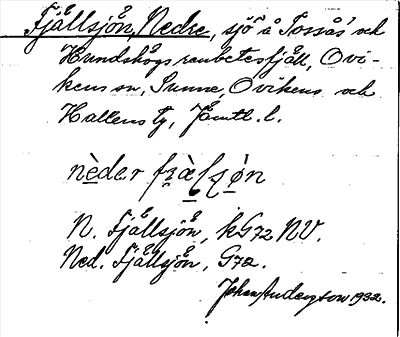 Fjällsjön, Nedre, sjö å Tossås och
Hundshögs renbetesfjäll, Ovi-
kens sn, Sunne, Ovikens och
Hallens tg, Jämtl. l.
nèder
N. Fjällsjön, kG72 NV.
Ned. Fjällsjön, G72.
Johan Anderson 1932.